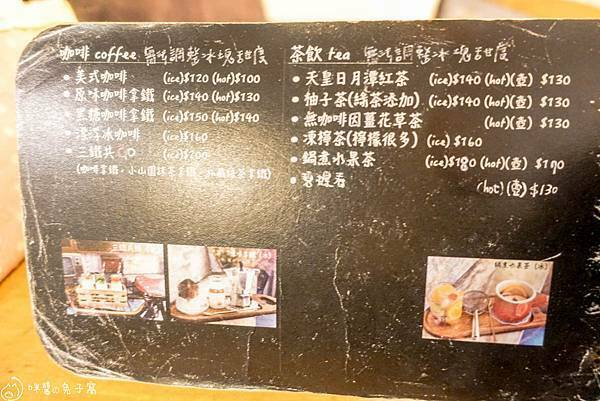 咖啡 coffee 無法調整冰塊甜度
• 美式咖啡 (ice)$120 (hot)$100
• 原味咖啡拿鐵 (ice)$140 (hot)$130
• 黑糖咖啡拿鐵 (ice)$150 (hot)$140
• 漂浮冰咖啡 (ice)$160
• 三鐵共 (ice)$200
(咖啡拿鐵，小山園抹茶拿鐵，
茶飲 tea 無法調整冰塊甜度
• 天皇日月潭紅茶 (ice)$140 (hot)(壺) $130
• 柚子茶(綠茶添加) (ice)$140 (hot)(壺) $130
• 無咖啡因薑花草茶 (hot)(壺) $130
• 凍檸茶(檸檬很多) (ice) $160
• 鍋煮水果茶 (ice)$180 (hot)(壺) $190
(hot)(壺)$130
鍋煮水果茶(冰)
咪醬の兔子窩